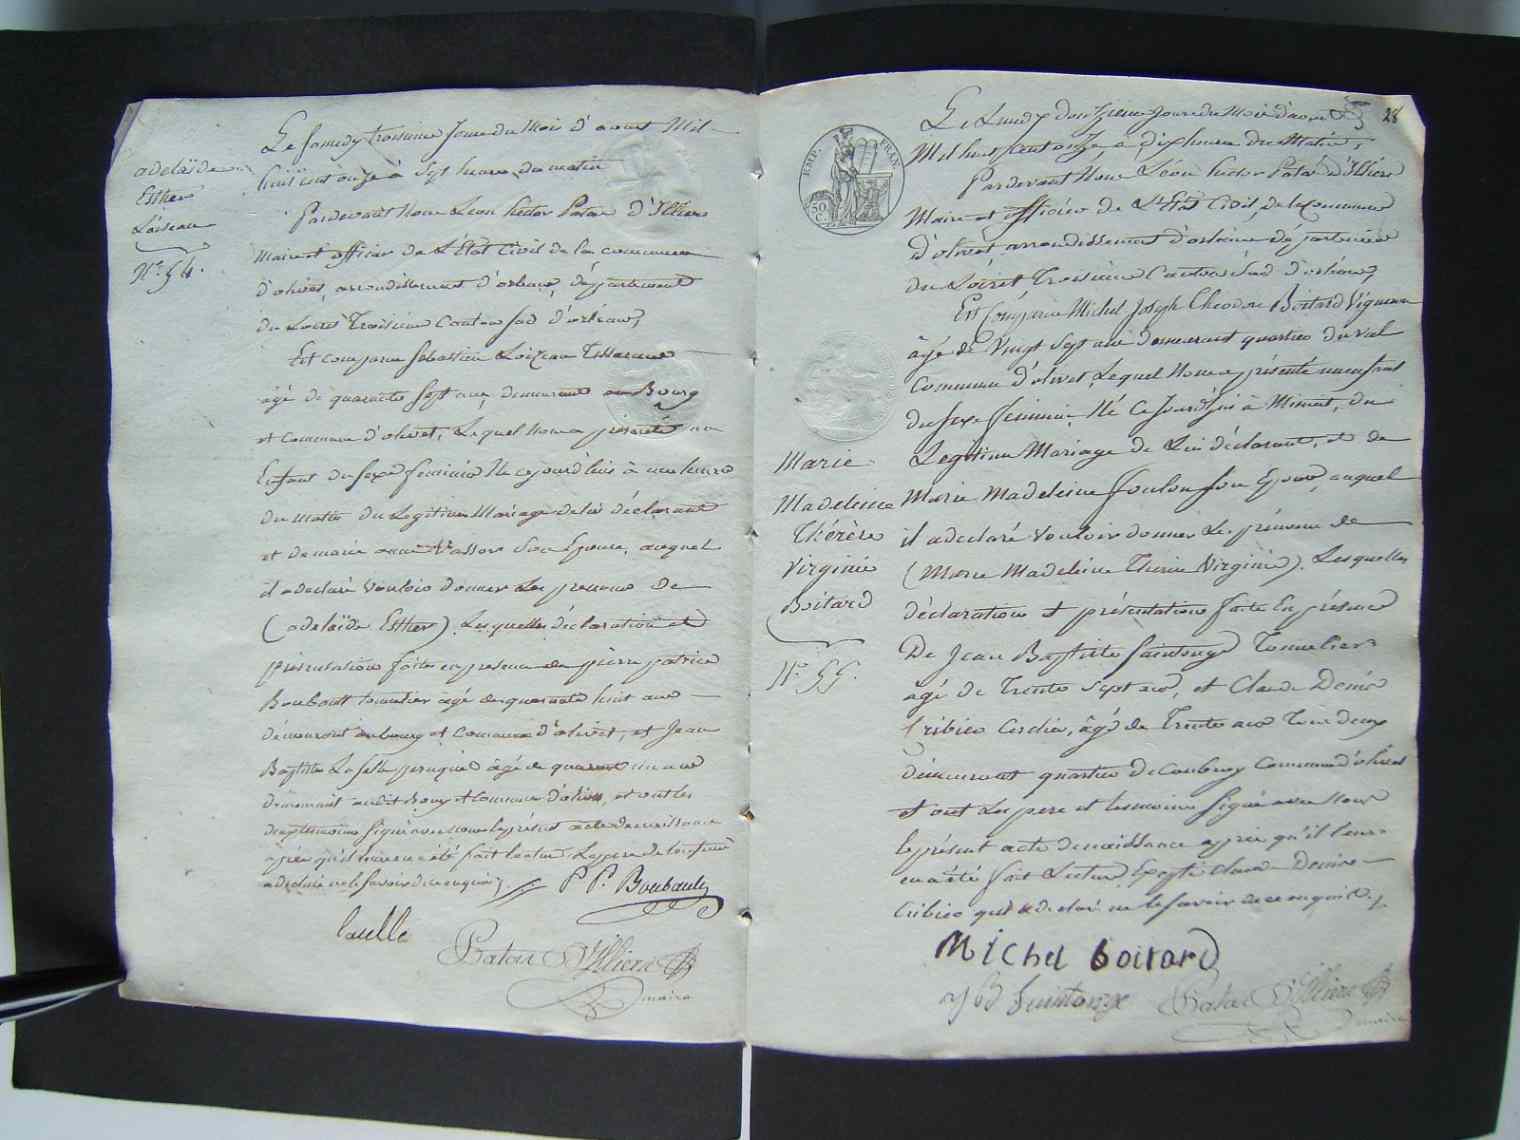 adelaïde
Esther
Loiseau
N.° 54.
Le Samedy troisieme Jour du Mois d'aoust Mil
huit cent onze à Sept heures du matin
Pardevant Nous Léon hector Patas d'Illiers
Maire et officier de L'Etat Civil de la commune
d'olivet, arrondissement d'orleans, département
du Loiret Troisieme Canton Sud d'orleans,
Est comparu Sebastien Loizeau Tisserand
âgé de quarante Sept ans, demeurant au Bourg
et commune d'olivet, Lequel Nous a présenté un
Enfant du Sexe feminin Né ce jourd'huy à une heure
du matin du Legitime Mariage de lui déclarant
et de marie anne Vassort Son Epouse, auquel
il a declaré vouloir donner Les prenoms de
(adelaïde Esther). Lesquelles déclaration et
présentation faite en presence de pierre patrice
Boubault tonnelier âgé de quarante huit ans
démeurant au bourg et Commune d'olivet, et Jean
Baptiste Laselle peruquier âgé de quarante un ans
Demeurant audit Bourg et Commune d'olivet, et ont les
deux temoins Signé avec nous le présent acte de naissance
après qu'il leur en a été fait lecture. Le pere de l'enfant
a declaré ne le Savoir de ce enquis
P P. Boubault
Laselle
Patas D'Illiers
maire
28
EMP. FRAN.
50 C.
Le Lundy douzieme Jour du Mois d'aoust
Mil huit cent onze, à Dix heures du Matin,
Pardevant Nous Léon hector Patas d'Illiers
Maire et officier de L'Etat Civil, de la Commune
d'olivet arrondissement d'orleans département
du Loiret Troisieme Canton Sud d'orleans,
Est Comparu Michel Joseph Theodore Boitard Vigneron
âgé de Vingt Sept ans demeurant quartier du val
Commune d'olivet, Lequel Nous a présenté un enfant
du Sexe feminin Né Ce Jourd'hui à Minuit, du
Legitime Mariage de Lui déclarant, et de
Marie Madeleine foulon Son Epouse, auquel
il a declaré vouloir donner Les prénoms de
(Marie Madeleine Therese Virginie). Lesquelles
déclaration et présentation faite En présence
De Jean Baptiste Saintonge Tonnelier
âgé de Trente Sept ans, et Claude Denis
Cribier Cordier, âgé de Trente ans Tous deux
demeurant quartier de Commune d'olivet
et ont Les pere et temoins Signé avec Nous
le présent acte de naissance après qu'il leur
en a été fait Lecture, Excepté Claude Denis
Cribier qui a declaré ne le Savoir de ce enquis.
Marie
Madeleine
Thérèse
Virginie
Boitard
N.° 55.
Michel Boitard
J B Saintonge
Patas D'Illiers
maire